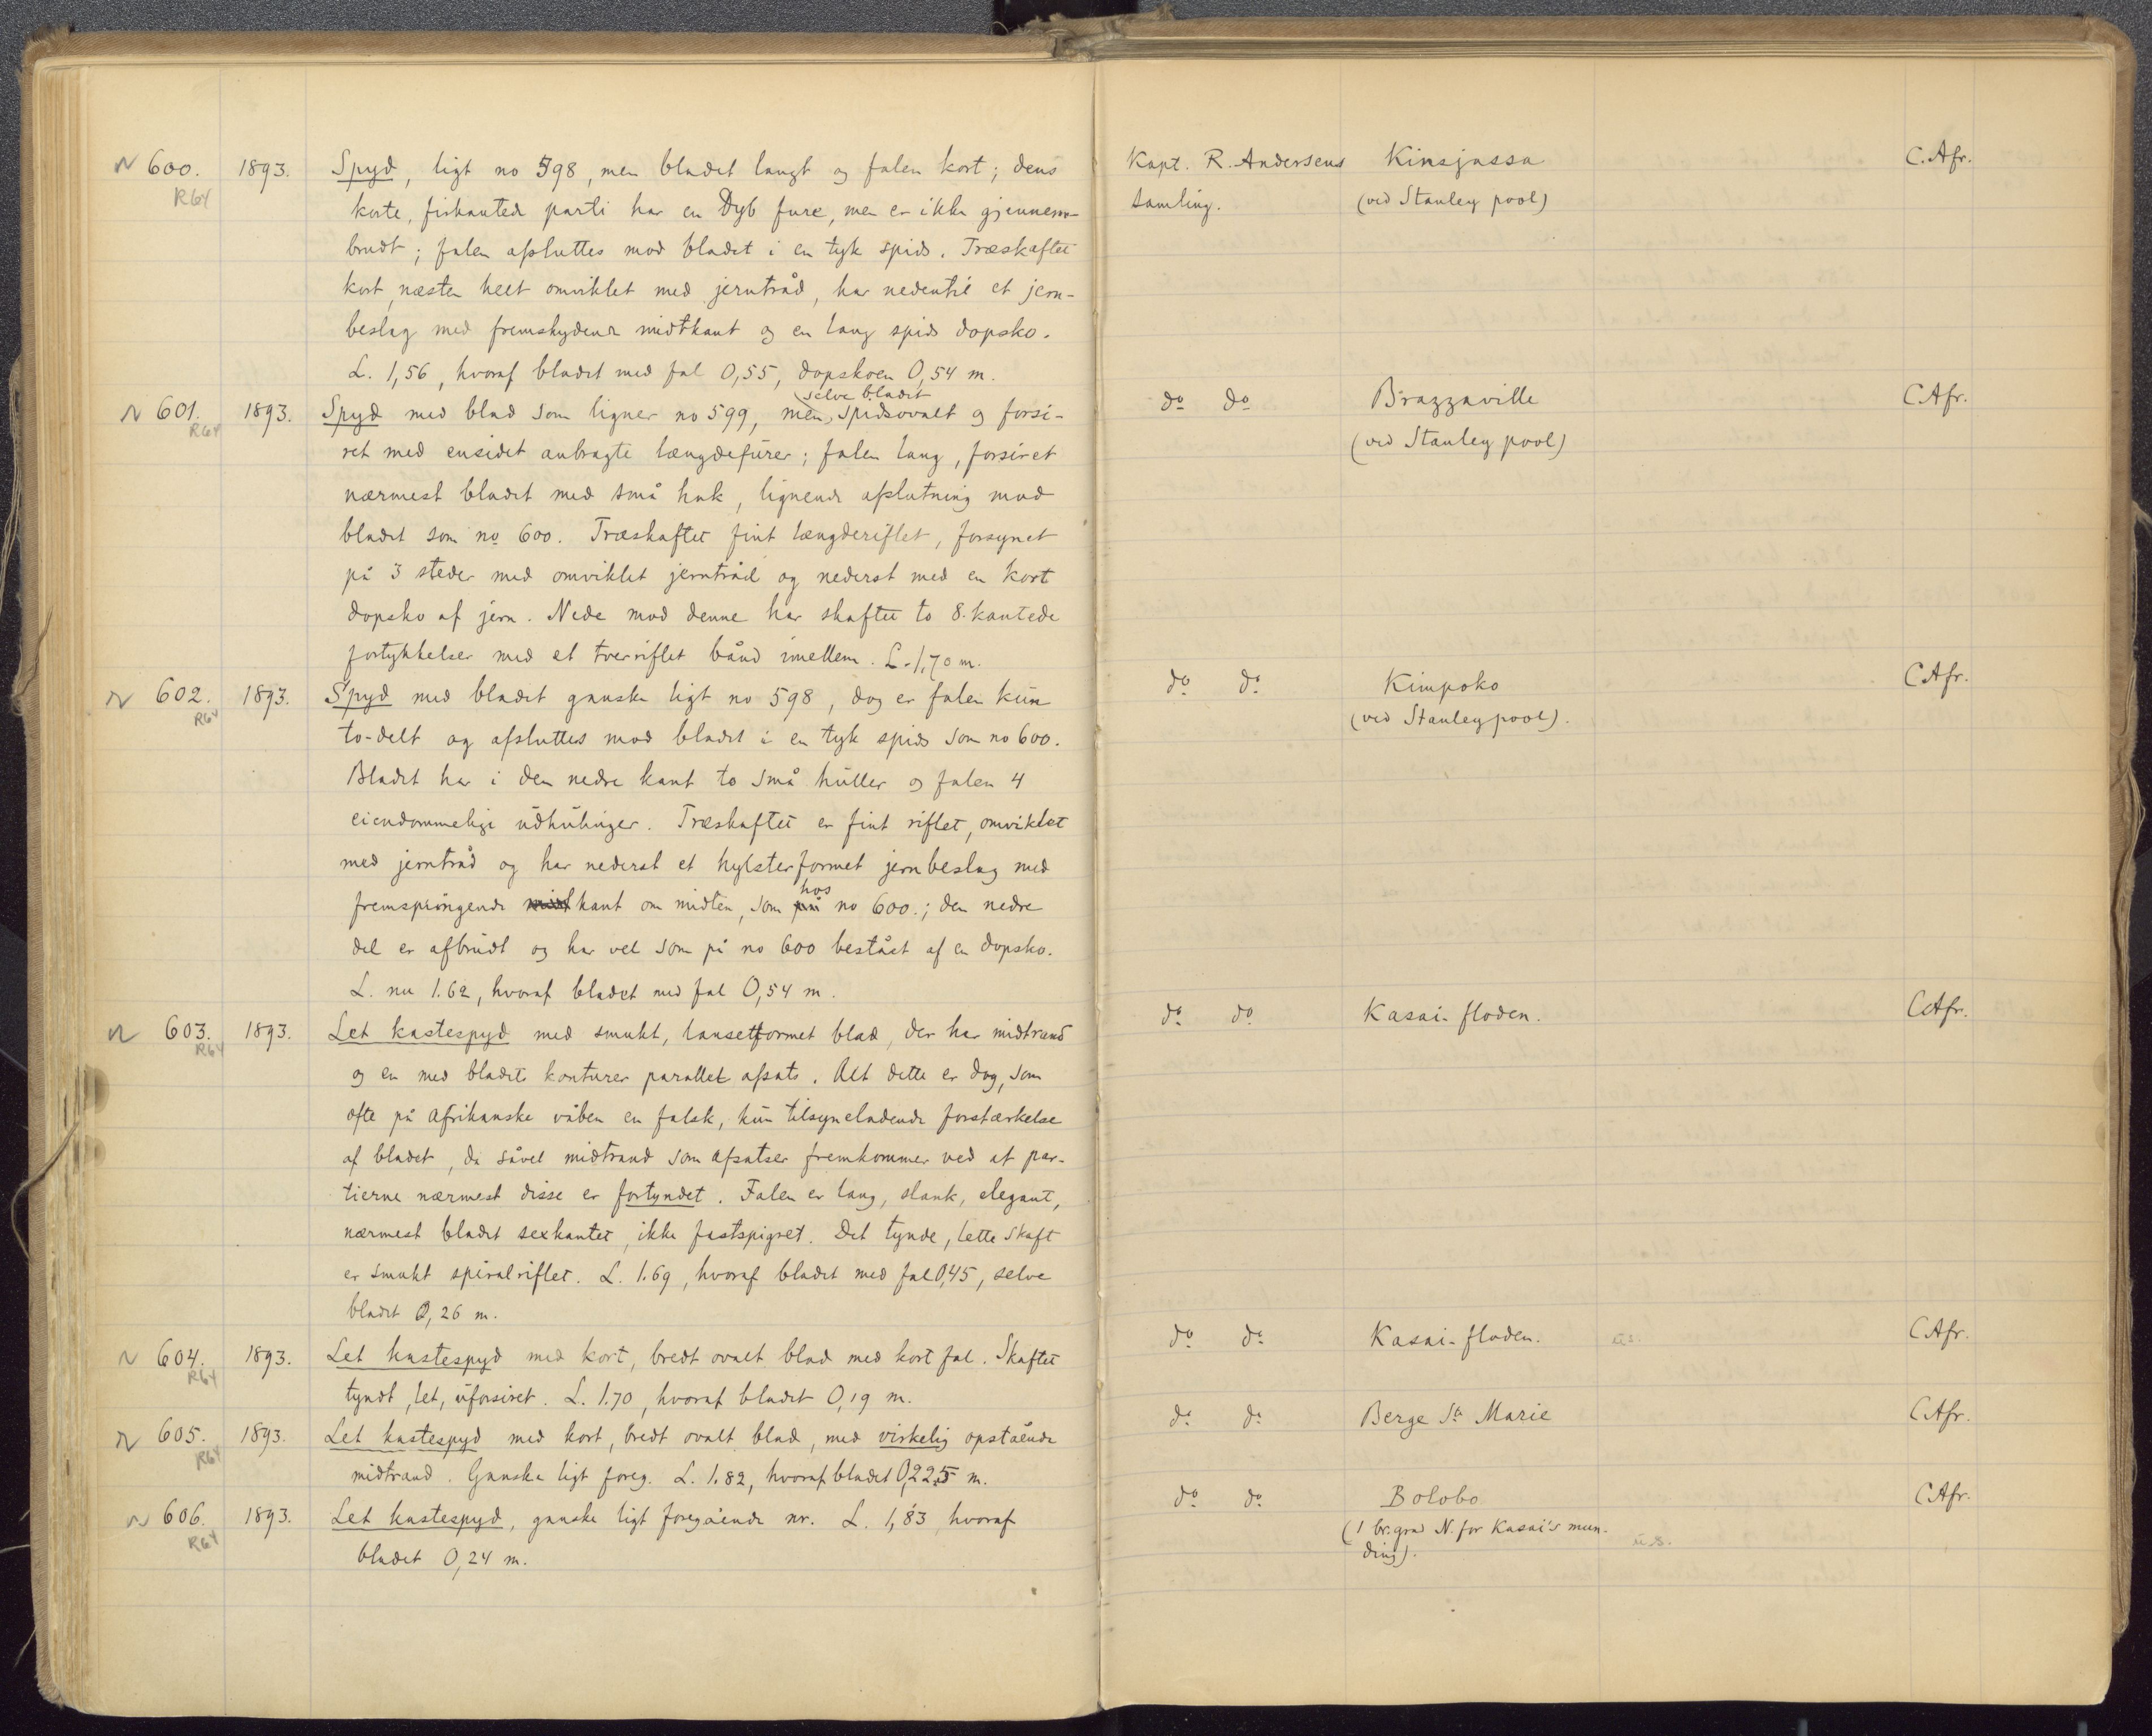 N 600. 1893. Spyd, ligt no 598, men bladet langt og falen kort; dens
R64
korte, firkantede parti har en dyb fure, men er ikke gjennem-
brudt; falen afsluttes mod bladet i en tyk spids. Træskaftet
kort, næsten helt omviklet med jerntråd, har nedentil et jern-
beslag med fremskydende midtkant og en lang spids dopsko.
L. 1,56, hvoraf bladet med fal 0,55, dopskoen 0,54 m.
Kapt. R. Andersens Kinsjassa C. Afr.
Samling. (ved Stanley pool)
N 601. 1893. Spyd med blad som ligner no 599, men selve bladet spidsovalt og forsi-
R64
ret med ensidet anbragte længdefurer; falen lang, forsiret
nærmest bladet med små hak, lignende afslutning mod
bladet som no 600. Træskaftet fint længderiflet, forsynet
på 3 steder med omviklet jerntråd og nederst med en kort
dopsko af jern. Nede mod denne har skaftet to 8-kantede
fortykkelser med et tverriflet bånd imellem. L. 1,70 m.
do do Brazzaville C Afr.
(ved Stanley pool)
N 602. 1893. Spyd med bladet ganske ligt no 598, dog er falen kun
R64
to-delt og afsluttes mod bladet i en tyk spids som no 600.
Bladet har i den nedre kant to små huller og falen 4
eiendommelige udhulinger. Træskaftet er fint riflet, omviklet
med jerntråd og har nederst et hylsterformet jernbeslag med
fremspringende midt kant om midten, som på hos no 600.; den nedre
del er afbrudt og har vel som på no 600 bestået af en dopsko.
L. nu 1.62, hvoraf bladet med fal 0,54 m.
do do Kimpoko C Afr.
(ved Stanleypool).
N 603. 1893. Let kastespyd med smukt, lansetformet blad, der har midtrand
R64
og en med bladets konturer parallel afsats. Alt dette er dog, som
ofte på afrikanske våben en falsk, kun tilsyneladende forstærkelse
af bladet, da såvel midtrand som afsatser fremkommer ved at par-
tierne nærmest disse er fortyndet. Falen er lang, slank, elegant,
nærmest bladet sexkantet, ikke fastspigret. Det tynde, lette skaft
er smukt spiralriflet. L. 1.69, hvoraf bladet med fal 0,45, selve
bladet 0,26 m.
do do Kasai-floden. C Afr.
N 604. 1893. Let kastespyd med kort, bredt ovalt blad med kort fal. Skaftet
R64
tyndt, let, uforsiret. L. 1.70, hvoraf bladet 0,19 m.
do do Kasai-floden. u.s. C Afr.
N 605. 1893. Let kastespyd med kort, bredt ovalt blad, med virkelig opstående
R64
midtrand. Ganske ligt foreg. L. 1.82, hvoraf bladet 0,225 m.
do do Berge Ste Marie C Afr.
N 606. 1893. Let kastespyd, ganske ligt foregående nr. L. 1,83 hvoraf
R64
bladet 0,24 m.
do do Bolobo C Afr.
(1 br.grad N. for Kasai's mun-
ding). u.s.